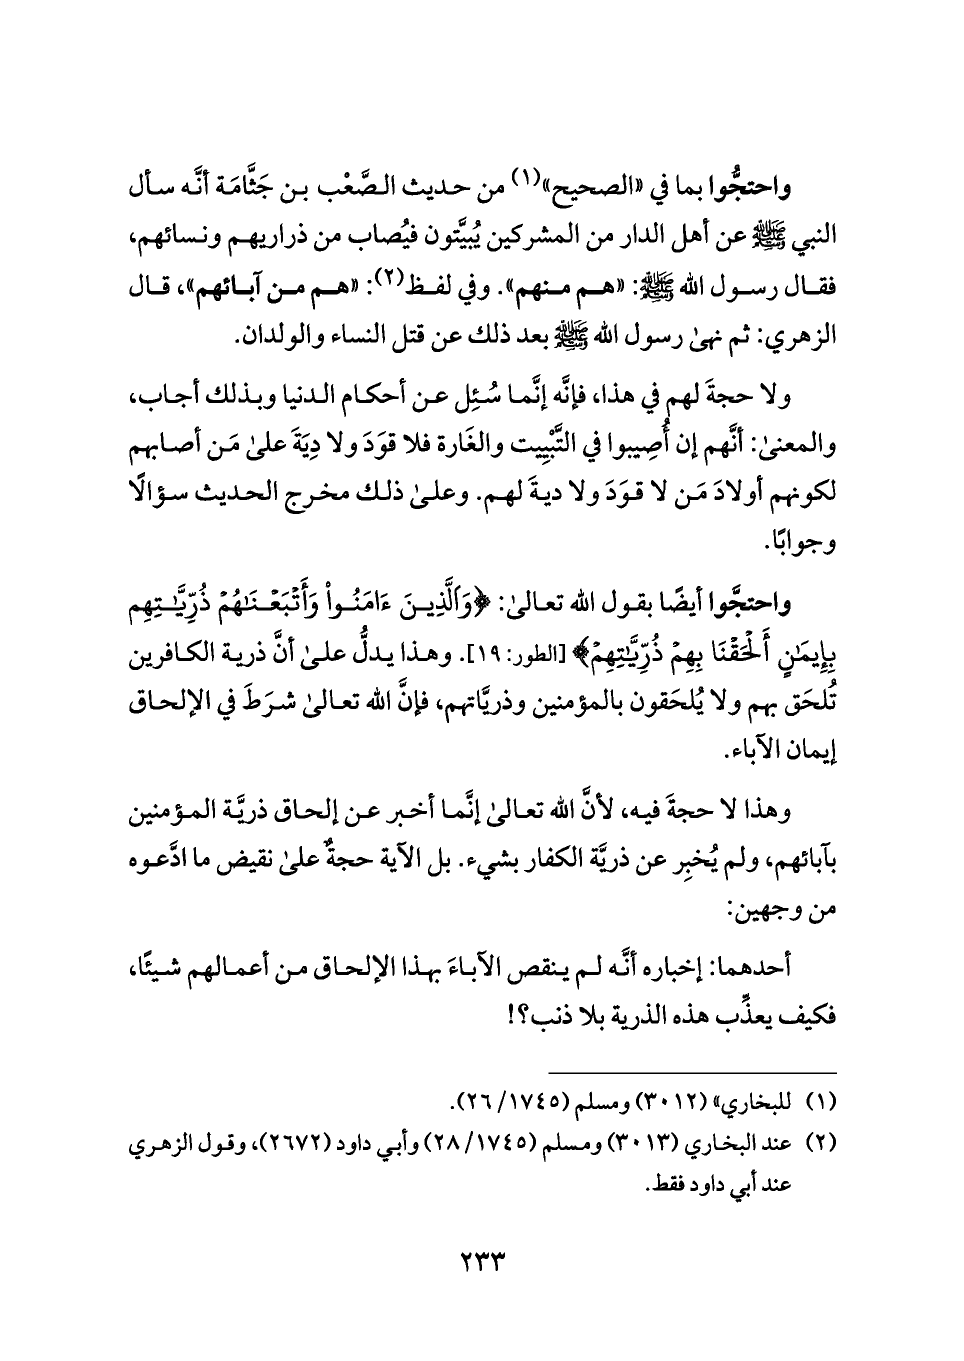 واحتجُّوا بما في «الصحيح»(١) من حديث الصَّعْب بن جَثَّامَة أنَّه سأل
النبي ﷺ عن أهل الدار من المشركين يُبيَّتون فيُصاب من ذراريهم ونسائهم،
فقال رسول الله ﷺ: «هم منهم». وفي لفظ(٢): «هم من آبائهم»، قال
الزهري: ثم نهىٰ رسول الله ﷺ بعد ذلك عن قتل النساء والولدان.
ولا حجةَ لهم في هذا، فإنَّه إنَّما سُئِل عن أحكام الدنيا وبذلك أجاب،
والمعنىٰ: أنَّهم إن أُصِيبوا في التَّبْيِيت والغَارة فلا قوَدَ ولا دِيَةَ علىٰ مَن أصابهم
لكونهم أولادَ مَن لا قوَدَ ولا ديةَ لهم. وعلىٰ ذلك مخرج الحديث سؤالًا
وجوابًا.
واحتجَّوا أيضًا بقول الله تعالىٰ: ﴿وَٱلَّذِينَ ءَامَنُواْ وَأَتۡبَعۡنَٰهُمۡ ذُرِّيَّٰتِهِم
بِإِيمَٰنٍ أَلۡحَقۡنَا بِهِمۡ ذُرِّيَّٰتِهِمۡ﴾ [الطور: ١٩]. وهذا يدلُّ علىٰ أنَّ ذرية الكافرين
تُلحَق بهم ولا يُلحَقون بالمؤمنين وذريَّاتهم، فإنَّ الله تعالىٰ شرَطَ في الإلحاق
إيمان الآباء.
وهذا لا حجةَ فيه، لأنَّ الله تعالىٰ إنَّما أخبر عن إلحاق ذريَّة المؤمنين
بآبائهم، ولم يُخبِر عن ذريَّة الكفار بشيء. بل الآية حجةٌ علىٰ نقيض ما ادَّعوه
من وجهين:
أحدهما: إخباره أنَّه لم ينقص الآباءَ بهذا الإلحاق من أعمالهم شيئًا،
فكيف يعذِّب هذه الذرية بلا ذنب؟!
(١) للبخاري» (٣٠١٢) ومسلم (١٧٤٥/ ٢٦).
(٢) عند البخاري (٣٠١٣) ومسلم (١٧٤٥/ ٢٨) وأبي داود (٢٦٧٢)، وقول الزهري
عند أبي داود فقط.
٢٣٣